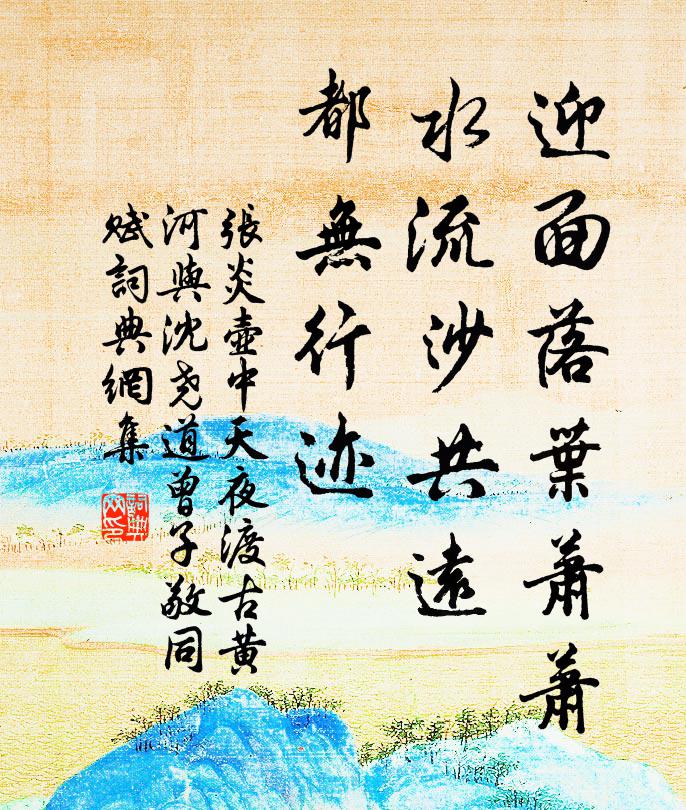 迎面落葉蕭蕭
水流沙共遠
都無行迹
張炎壺中天夜渡古黄
河與沈堯道曾子敬同
賦詞典網集
詞典